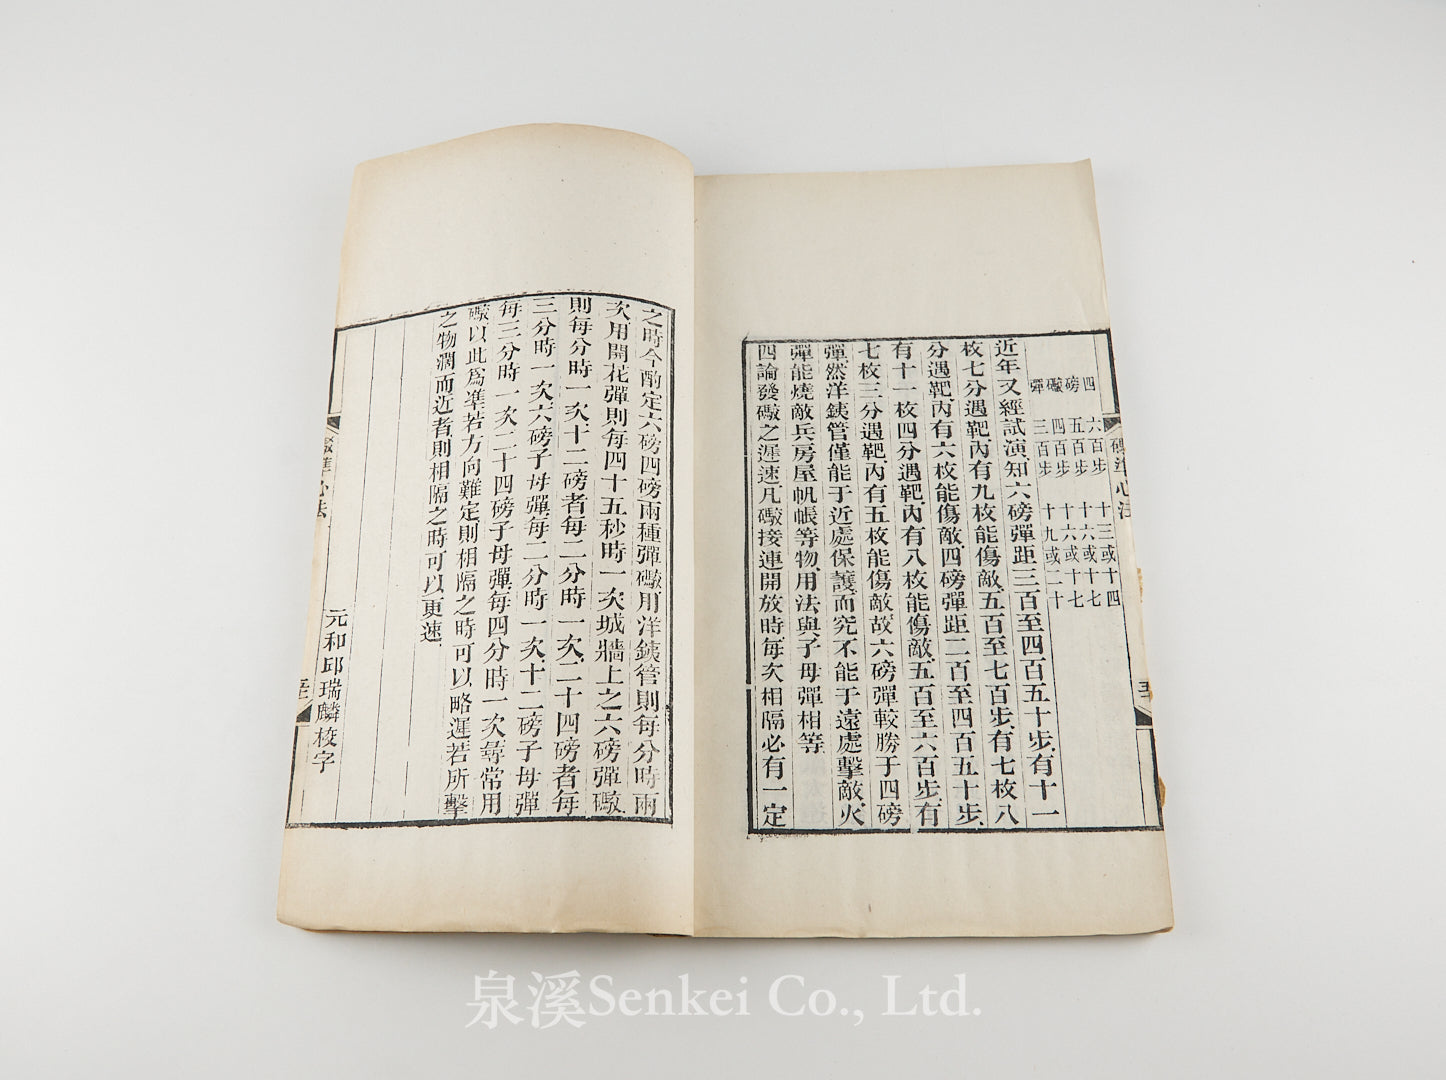 四磅礮彈
六百步 十三或十四
五百步 十六或十七
四百步 十六或十七
三百步 十九或二十
近年又經試演知六磅彈距三百至四百五十步有十一
枚七分遇靶內有九枚能傷敵五百至七百步有七枚八
分遇靶內有六枚能傷敵四磅彈距二百至四百五十步
有十一枚四分遇靶內有八枚能傷敵五百至六百步有
七枚三分遇靶內有五枚能傷敵故六磅彈較勝于四磅
彈然洋銕管僅能于近處保護而究不能于遠處擊敵火
彈能燒敵兵房屋帆帳等物用法與子母彈相等
四論發礮之遲速凡礮接連開放時每次相隔必有一定
礮準心法
之時今酌定六磅四磅兩種彈礮用洋銕管則每分時兩
次用開花彈則每四十五秒時一次城牆上之六磅彈礮
則每分時一次十二磅者每二分時一次二十四磅者每
三分時一次六磅子母彈每二分時一次十二磅子母彈
每三分時一次二十四磅子母彈每四分時一次尋常用
礮以此爲準若方向難定則相隔之時可以略遲若所擊
之物濶而近者則相隔之時可以更速
元和邱瑞麟校字
礮準心法
泉溪Senkei Co., Ltd.